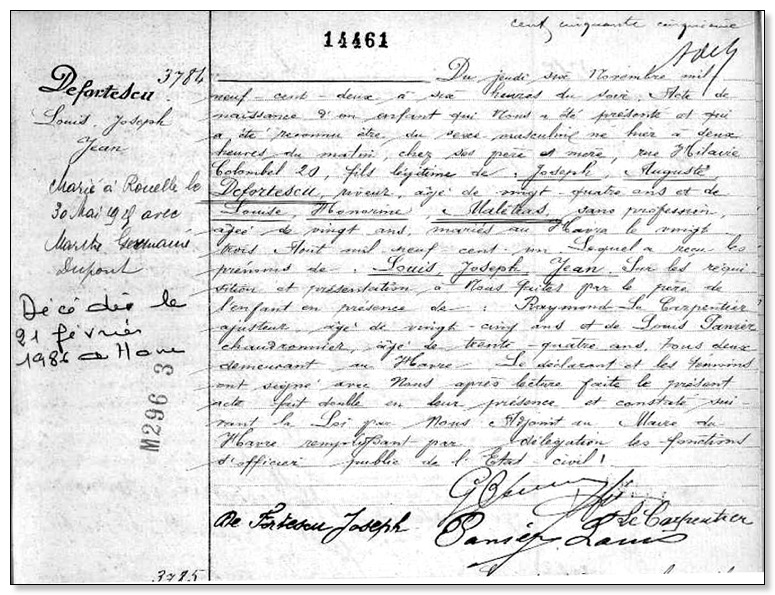 cent cinquante cinquième
14461
3784
Defortescu
Louis Joseph
Jean
Marié à Rouelle le
30 Mai 19 avec
Marthe Germaine
Dupont
Décédé le
21 février
1986 a Havre
M296 3
Du jeudi six Novembre mil
neuf-cent-deux à six heures du soir. Acte de
naissance d'un enfant qui Nous a été présenté et qui
a été reconnu être du sexe masculin né hier à deux
heures du matin, chez ses père et mère, rue Hilaire
Colombel 20, fils légitime de Joseph, Auguste
Defortescu, riveur, âgé de vingt quatre ans et de
Louise, Honorine Malétras, sans profession,
âgée de vingt ans, mariés au Havre le vingt
trois Août mil neuf cent un. Lequel a reçu les
prénoms de : Louis Joseph Jean. Sur les réqui-
sition et présentation à Nous faites par le père de
l'enfant en présence de : Raymond Le Carpentier
ajusteur, âgé de vingt-cinq ans et de Louis Panier
chaudronnier, âgé de trente-quatre ans, tous deux
demeurant au Havre. Le déclarant et les témoins
ont signé avec Nous après lecture faite le présent
acte fait double en leur présence et constaté sui-
vant la Loi par Nous Adjoint au Maire du
Havre remplissant par délégation les fonctions
d'officier public de l'Etat-civil !
De Fortescu Joseph
Le Carpentier
Panier Louis
3785